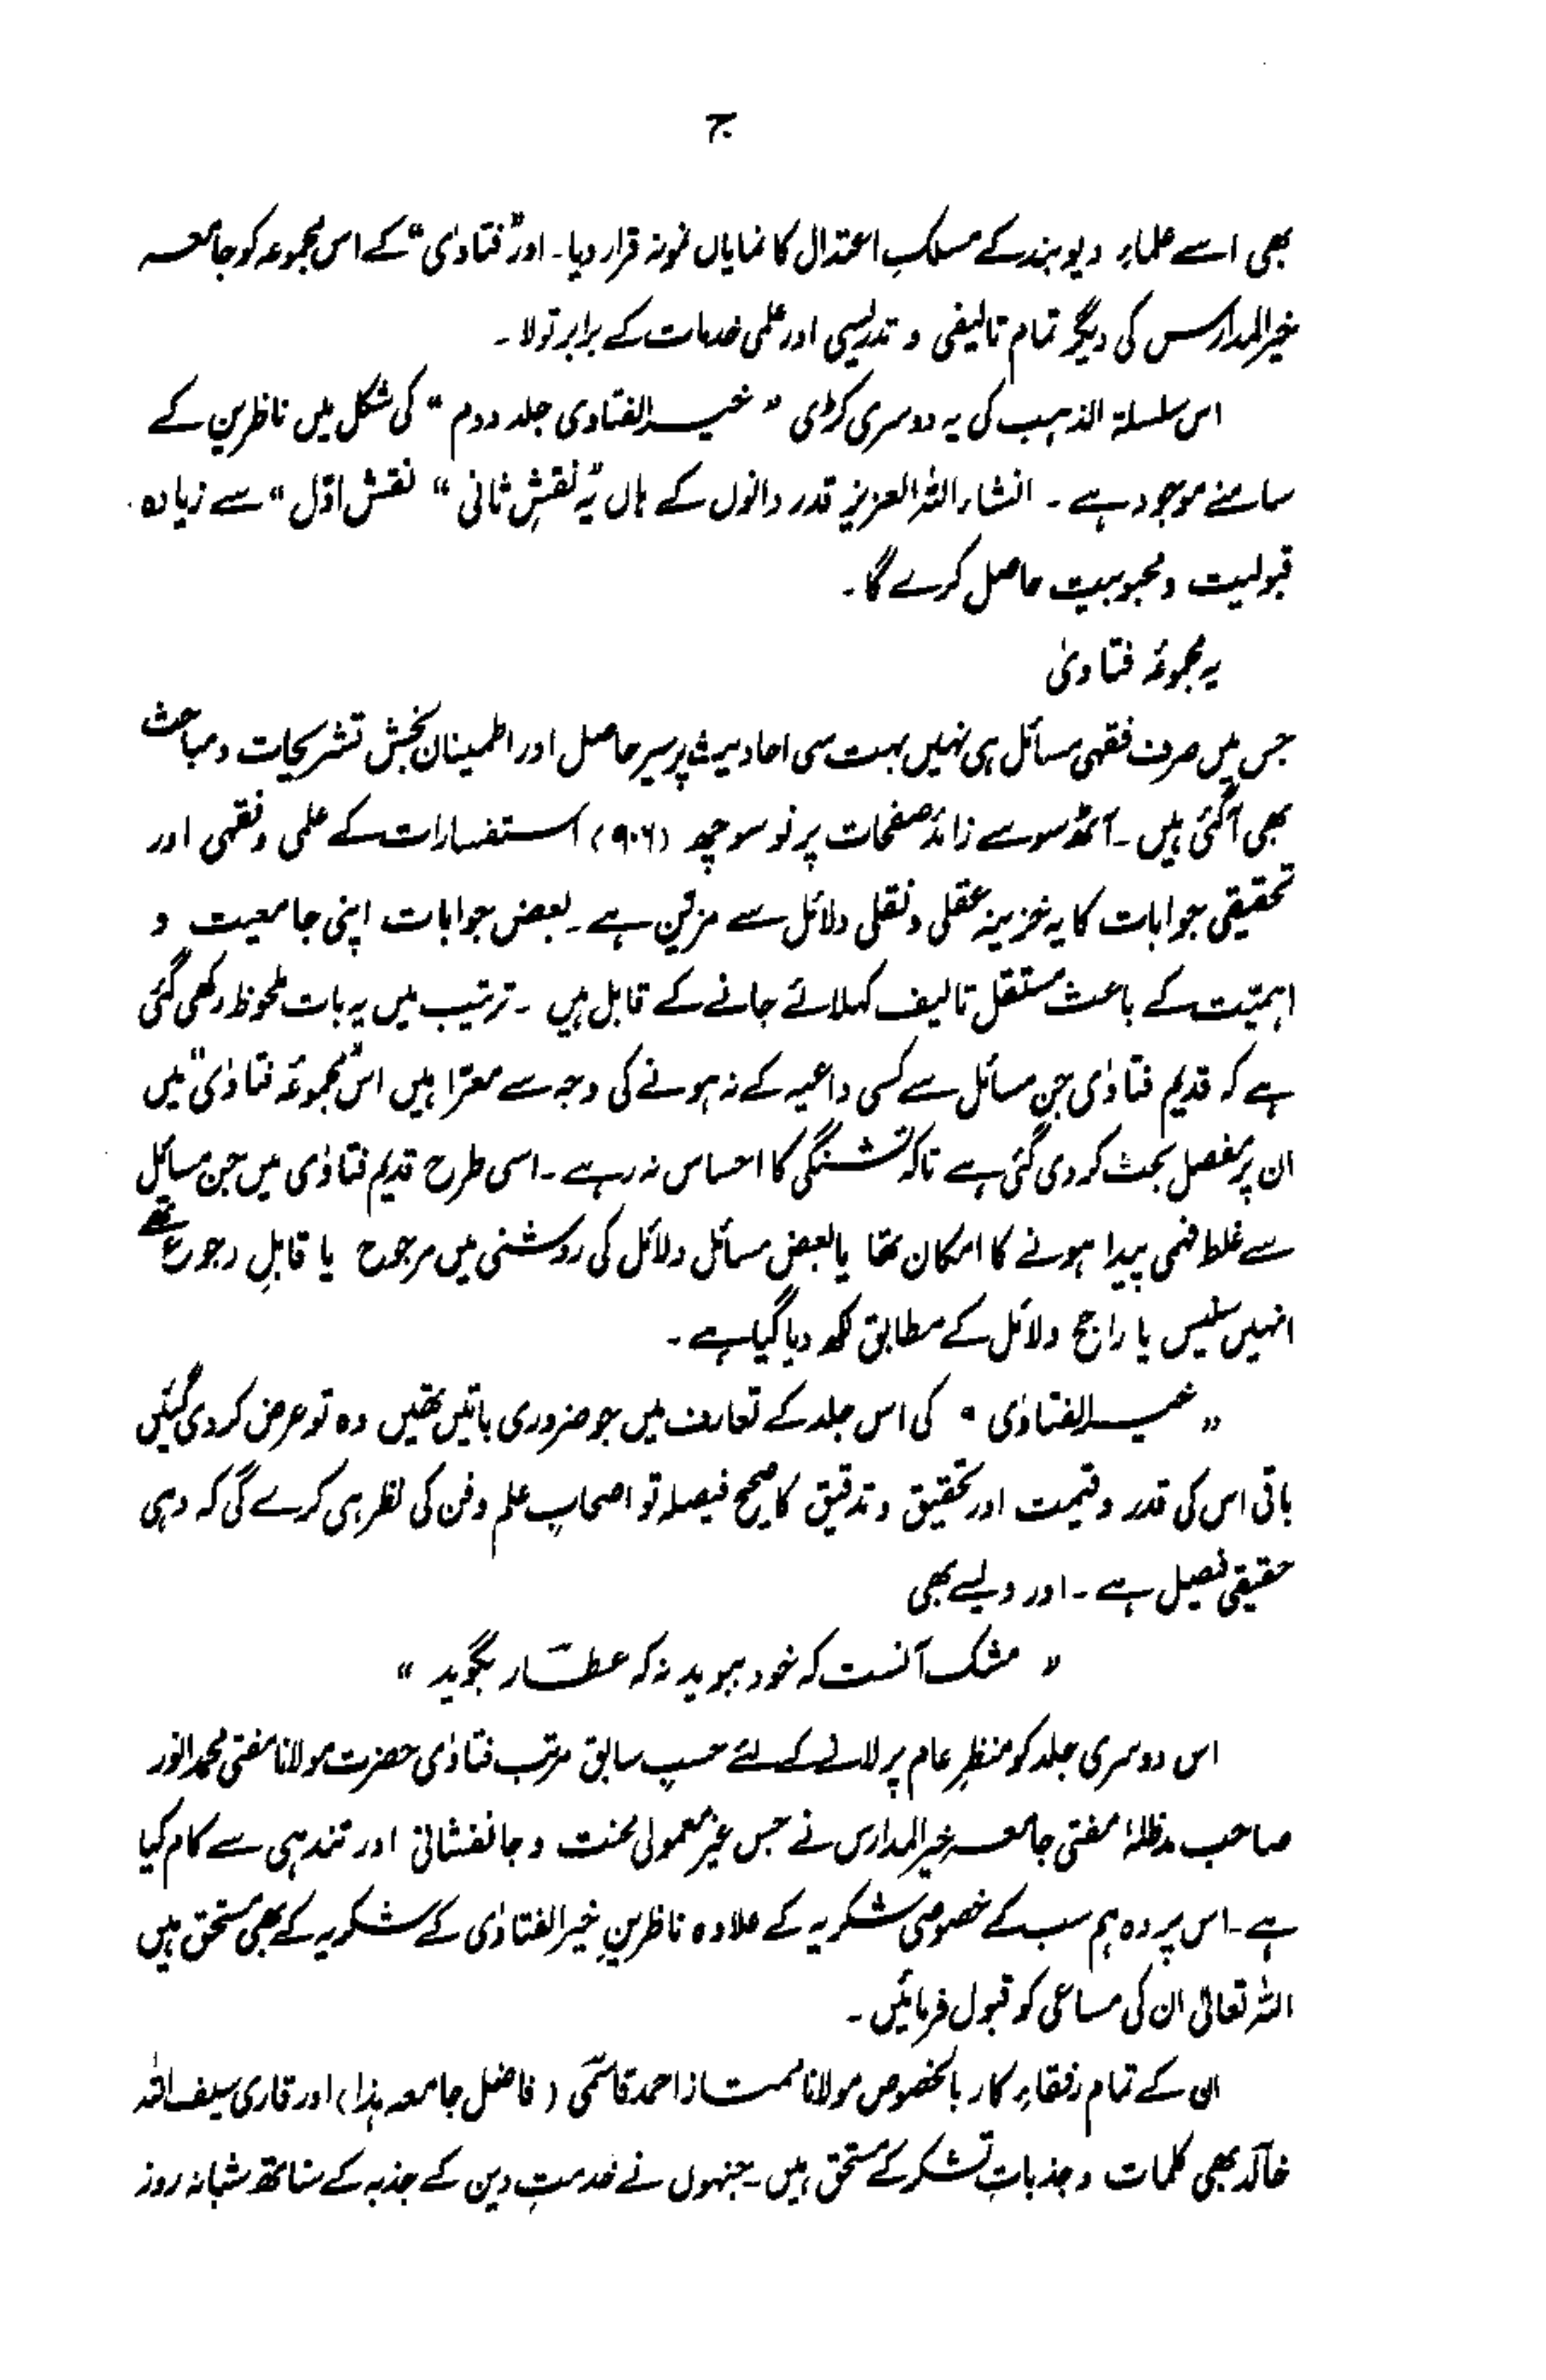 ج
بھی اسے علماءِ دیوبند کے مسلکِ اعتدال کا نمایاں نمونہ قرار دیا۔ اور "فتاویٰ" کے اس مجموعہ کو جامعہ
خیرالمدارس کی دیگر تمام تالیفی و تدریسی اور علمی خدمات کے برابر تولا۔
اس سلسلۃ الذہب کی یہ دوسری کڑی "خیرالفتاوی جلد دوم" کی شکل میں ناظرین کے
سامنے موجود ہے۔ انشاء اللہ العزیز قدر دانوں کے ہاں یہ "نقشِ ثانی" "نقش اوّل" سے زیادہ
قبولیت و محبوبیت حاصل کرے گا۔
یہ مجموعۂ فتاویٰ
جس میں صرف فقہی مسائل ہی نہیں بہت سی احادیث پر سیر حاصل اور اطمینان بخش تشریحات و مباحث
بھی آگئی ہیں۔ آٹھ سو سے زائد صفحات پر نو سو چھ (۹۰۶) استفسارات کے علمی و فقہی اور
تحقیقی جوابات کا یہ خزینہ عقلی و نقلی دلائل سے مزیّن ہے۔ بعض جوابات اپنی جامعیت و
اہمیّت کے باعث مستقل تالیف کہلائے جانے کے قابل ہیں۔ ترتیب میں یہ بات ملحوظ رکھی گئی
ہے کہ قدیم فتاوٰی جن مسائل سے کسی داعیہ کے نہ ہونے کی وجہ سے معرّا ہیں اس "مجموعۂ فتاوٰی" میں
ان پر مفصل بحث کر دی گئی ہے تاکہ تشنگی کا احساس نہ رہے۔ اسی طرح قدیم فتاوٰی میں جن مسائل
سے غلط فہمی پیدا ہونے کا امکان تھا یا بعض مسائل دلائل کی روشنی میں مرجوح یا قابلِ رجوع تھے
انہیں سلیس یا راجح دلائل کے مطابق لکھ دیا گیا ہے۔
"خیرالفتاوٰی" کی اس جلد کے تعارف میں جو ضروری باتیں تھیں وہ تو عرض کر دی گئیں
باقی اس کی قدر و قیمت اور تحقیق و تدقیق کا صحیح فیصلہ تو اصحابِ علم و فن کی نظر ہی کرے گی کہ وہی
حقیقی فیصل ہے۔ اور ویسے بھی
"مشک آنست کہ خود ببوید نہ کہ عطّار بگوید"
اس دوسری جلد کو منظرِ عام پر لانے کے لئے حسبِ سابق مرتب فتاوٰی حضرت مولانا مفتی محمد انور
صاحب مدظلہٗ مفتی جامعہ خیرالمدارس نے جس غیر معمولی محنت و جانفشانی اور تندہی سے کام کیا
ہے۔ اس پر وہ ہم سب کے خصوصی شکریہ کے علاوہ ناظرینِ خیرالفتاوٰی کے شکریہ کے بھی مستحق ہیں
اللہ تعالیٰ ان کی مساعی کو قبول فرمائیں۔
ان کے تمام رفقاءِ کار بالخصوص مولانا ممتاز احمد قاسمی (فاضل جامعہ ہذا) اور قاری سیف اللہ
خالد بھی کلمات و جذباتِ تشکر کے مستحق ہیں۔ جنہوں نے خدمتِ دین کے جذبہ کے ساتھ شبانہ روز